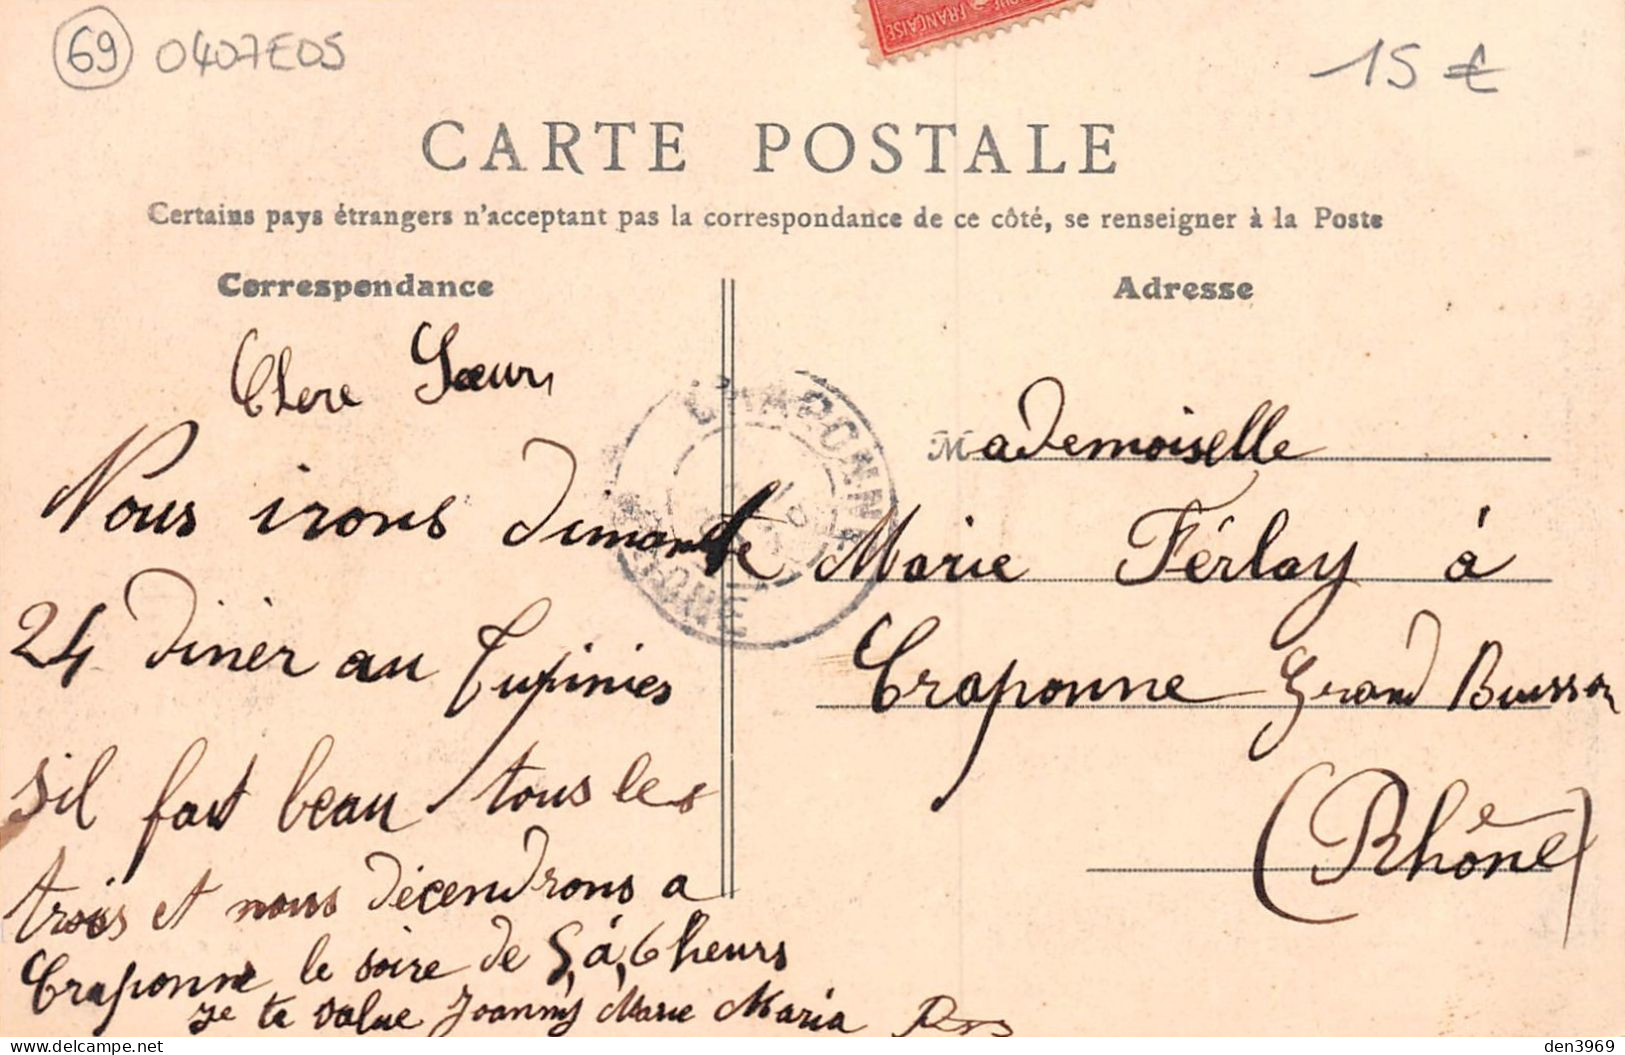 69 0407E05
15 €
FRANÇAISE
CARTE POSTALE
Certains pays étrangers n'acceptant pas la correspondance de ce côté, se renseigner à la Poste
Correspondance
Chere Sœur,
Nous irons dimanche
24 diner au Tupinies
sil fait beau tous les
trois et nous décendrons a
Craponne le soire de 5 à 6 heurs
Je te salue Joannÿ Marie Maria
CRAPONNE
RHONE
Adresse
Mademoiselle
Marie Férlay à
Craponne Grand Buisson
(Rhône)
den3969